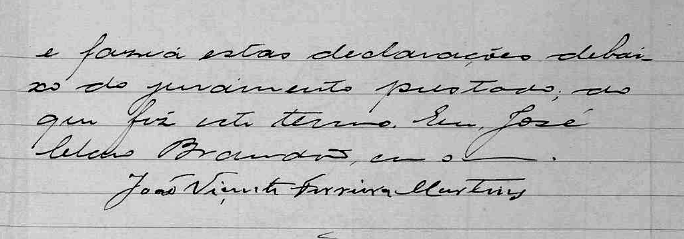 e fazia estas declarações debai-
xo do juramento prestado; do
que fiz este termo. Eu, José
Brandão, o
João Vicente Ferreira Martins